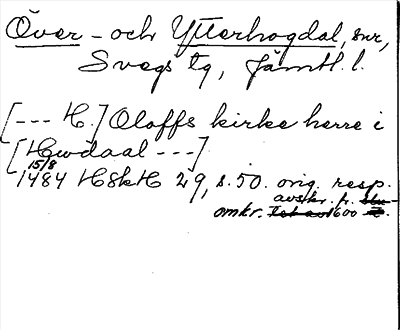 Över- och Ytterhogdal, snr,
Svegs tg, Jämtl. l.
[--- H.] Oloffs kirke herre i
[Hwdaal ---]
15/8
1484 HSkH 29, s. 50. orig. resp.
avskr. fr.
omkr. 1600